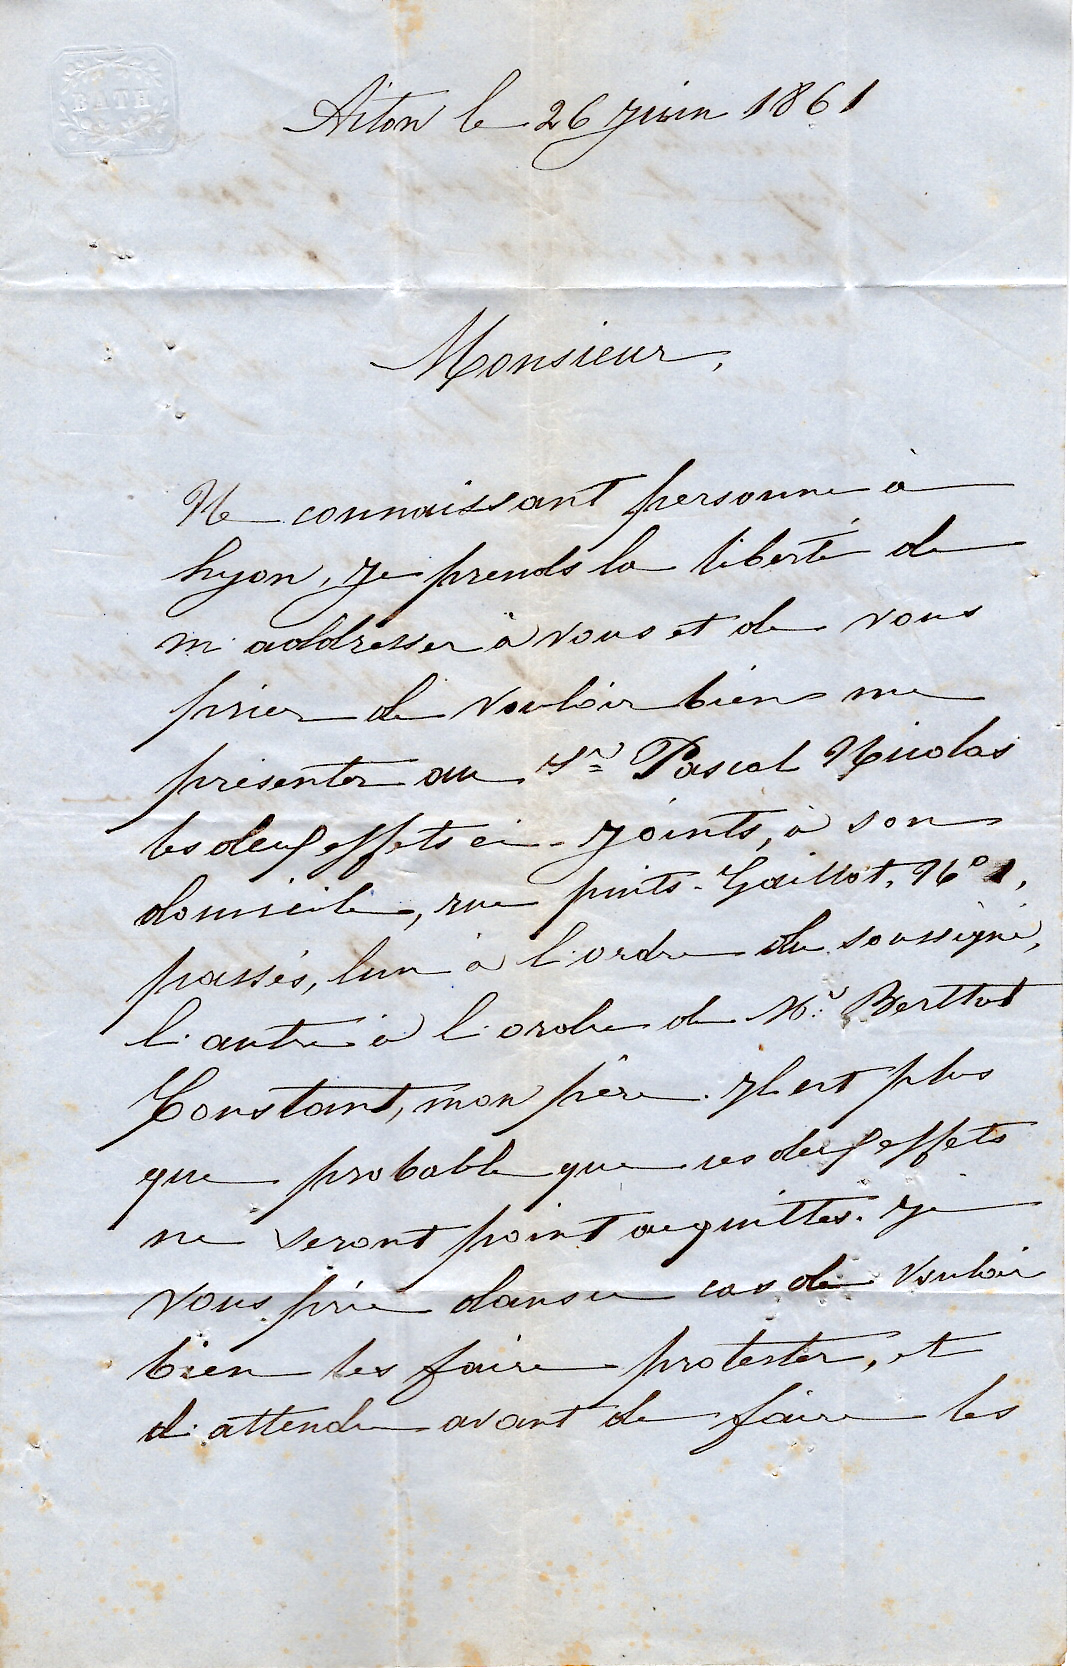 BATH
Aiton le 26 Juin 1861
Monsieur,
Ne connaissant personne à
Lyon, je prends la liberté de
m'addresser à vous et de vous
prier de vouloir bien me
présenter au Sr Pascal Nicolas
les deux effets ci-joints, à son
domicile, rue puits-Gaillot, No 1,
passés, l'un à l'ordre du soussigné,
l'autre à l'ordre de Mr Berthot
Constant, mon père. Il est plus
que probable que ces deux effets
ne seront point acquittés. Je
vous prie dans ce cas de vouloir
bien les faire protester, et
d'attendre avant de faire les